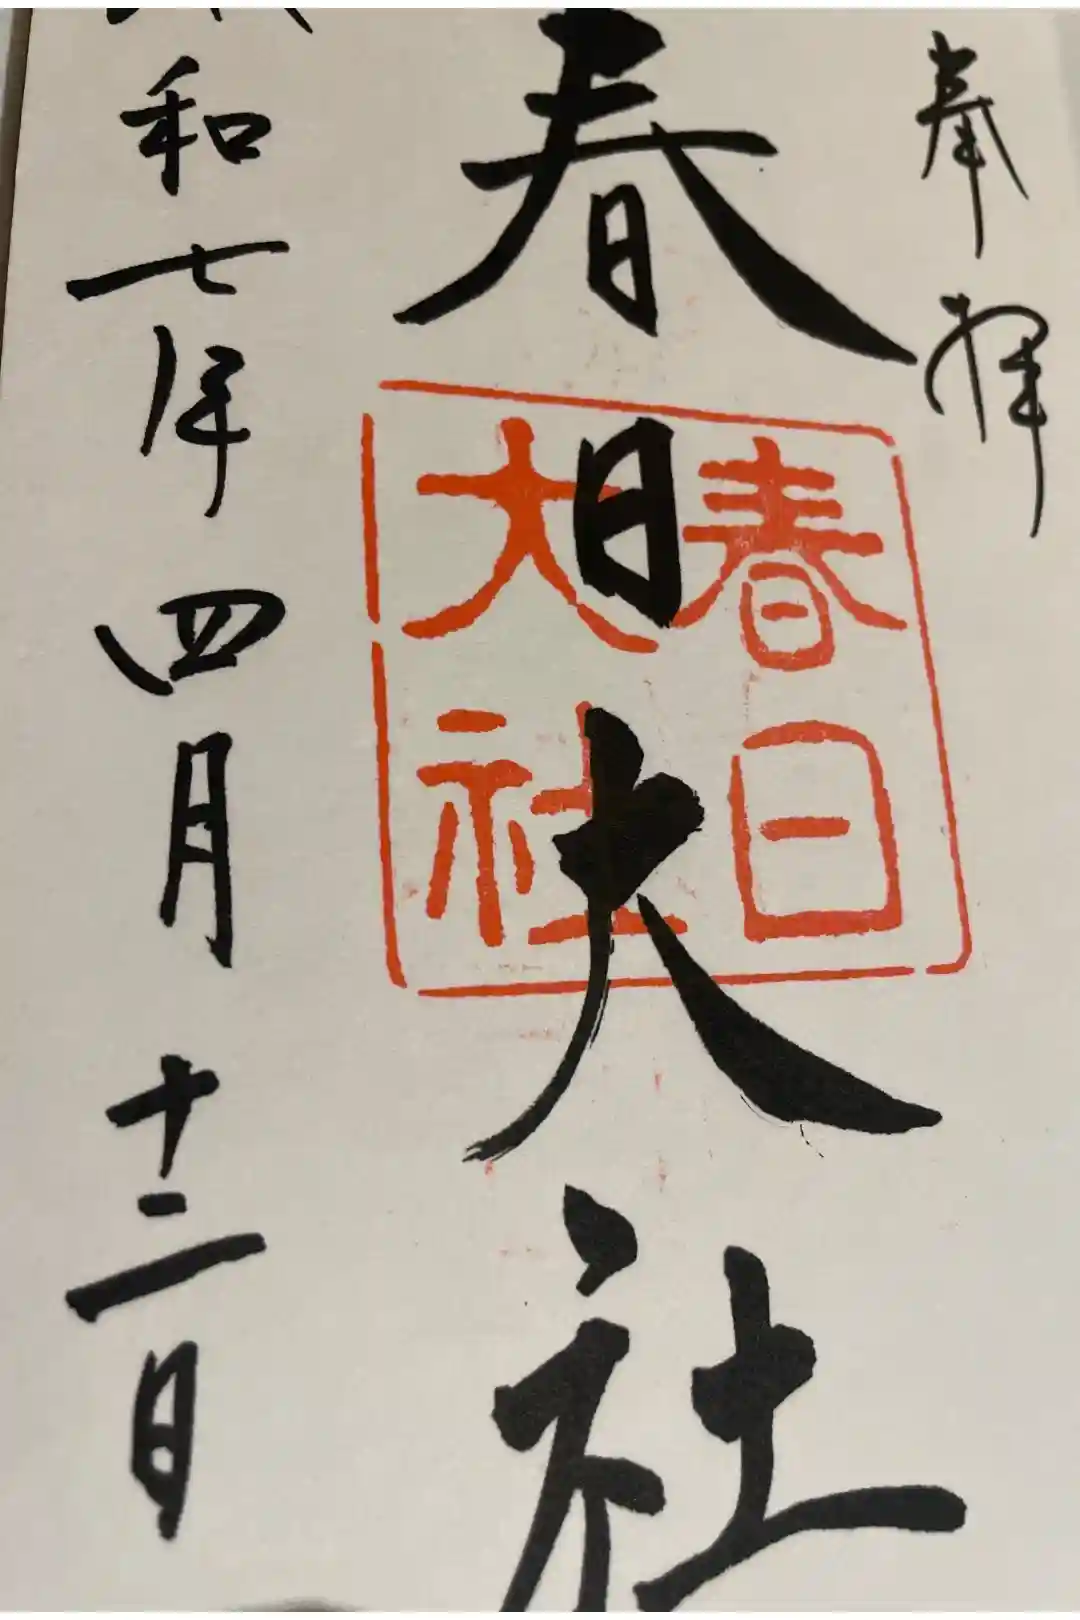 奉拝
春日大社
春日
大社
和七年四月十二日